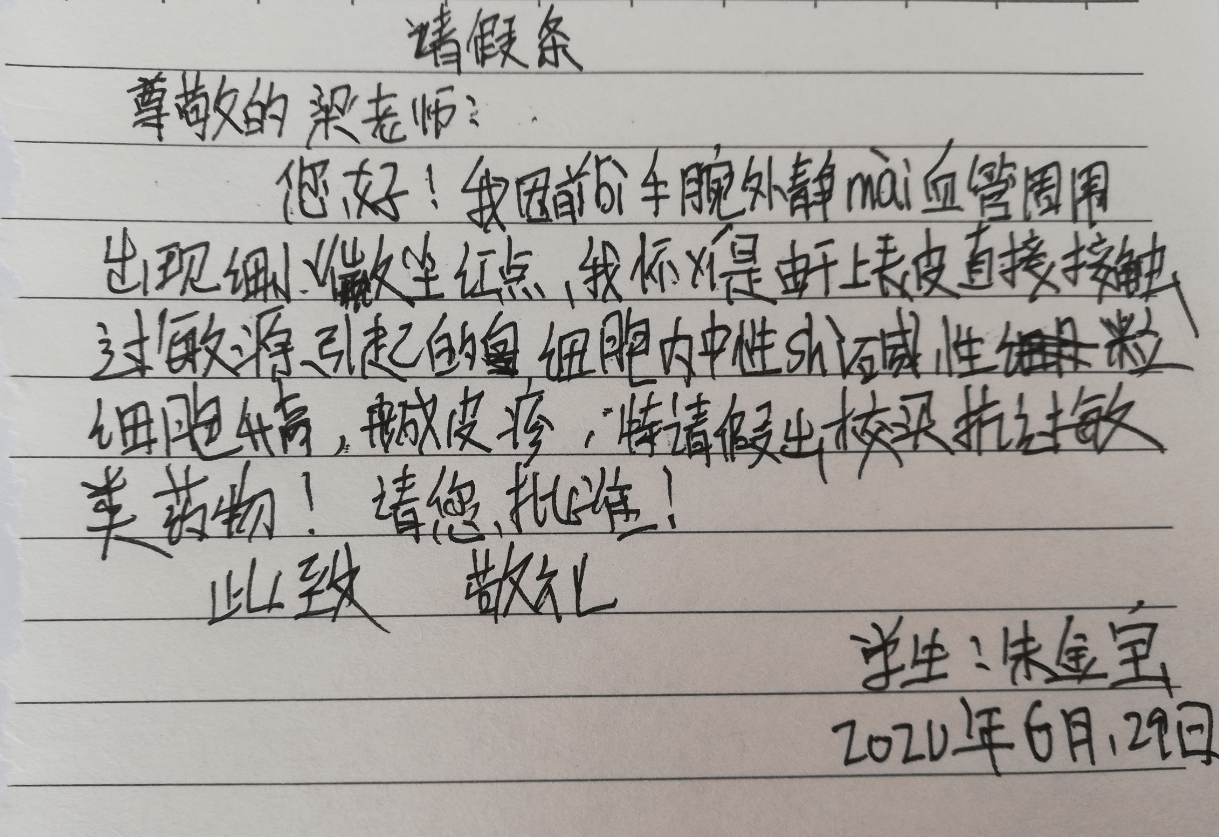 请假条
尊敬的梁老师：
您好！我因前bì手腕外静mài血管周围
出现细小微尘红点，我怀xī是由于上表皮直接接触
过敏源引起的 细胞内中性sh 碱性 粒
细胞升高， 皮疹，特请假出校买抗过敏
类药物！请您批准！
此致 敬礼
学生：朱金宝
2020年6月29日